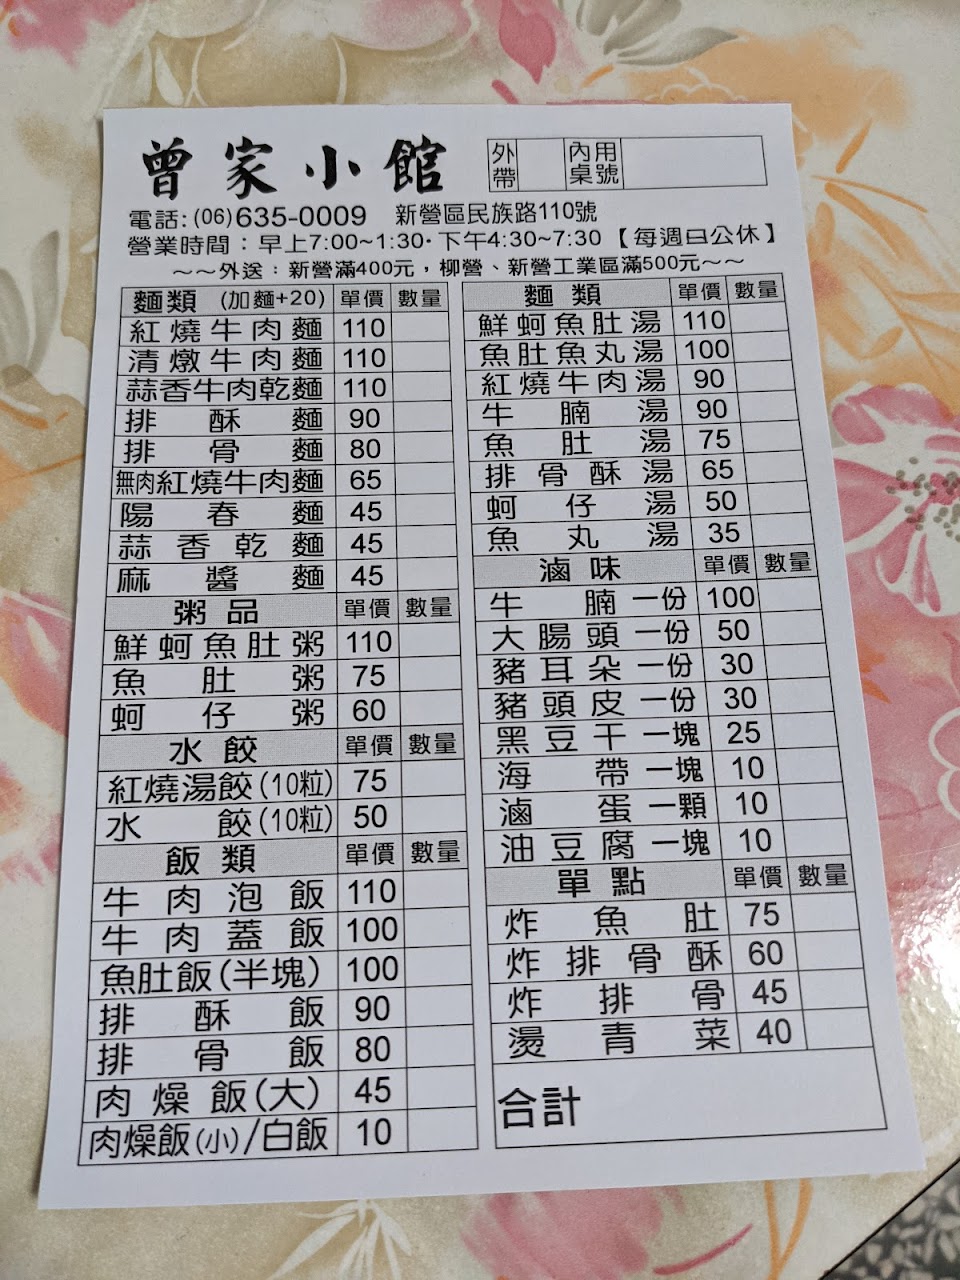 曾家小館
外帶
內用桌號
電話:(06)635-0009 新營區民族路110號
營業時間：早上7:00~1:30·下午4:30~7:30【每週日公休】
～～外送：新營滿400元，柳營、新營工業區滿500元～～
麵類 (加麵+20) 單價 數量
紅燒牛肉麵 110
清燉牛肉麵 110
蒜香牛肉乾麵 110
排酥麵 90
排骨麵 80
無肉紅燒牛肉麵 65
陽春麵 45
蒜香乾麵 45
麻醬麵 45
粥品 單價 數量
鮮蚵魚肚粥 110
魚肚粥 75
蚵仔粥 60
水餃 單價 數量
紅燒湯餃(10粒) 75
水餃(10粒) 50
飯類 單價 數量
牛肉泡飯 110
牛肉蓋飯 100
魚肚飯(半塊) 100
排酥飯 90
排骨飯 80
肉燥飯(大) 45
肉燥飯(小)/白飯 10
麵類 單價 數量
鮮蚵魚肚湯 110
魚肚魚丸湯 100
紅燒牛肉湯 90
牛腩湯 90
魚肚湯 75
排骨酥湯 65
蚵仔湯 50
魚丸湯 35
滷味 單價 數量
牛腩一份 100
大腸頭一份 50
豬耳朵一份 30
豬頭皮一份 30
黑豆干一塊 25
海帶一塊 10
滷蛋一顆 10
油豆腐一塊 10
單點 單價 數量
炸魚肚 75
炸排骨酥 60
炸排骨 45
燙青菜 40
合計